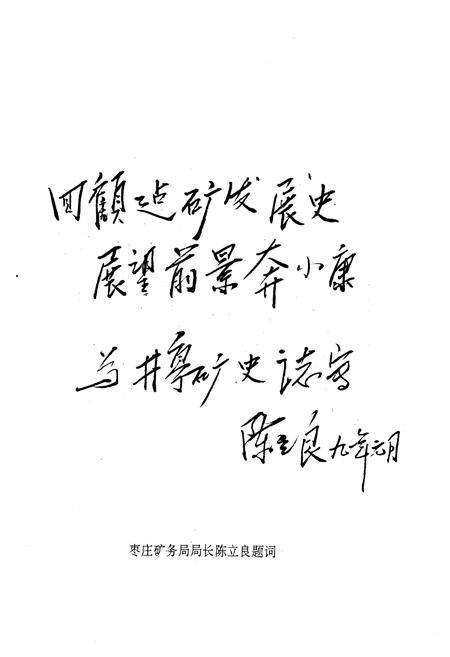 回顧迠矿发展史
展望前景奔小康
为井亭矿史誌写
陈立良九一年元月
枣庄矿务局局长陈立良题词